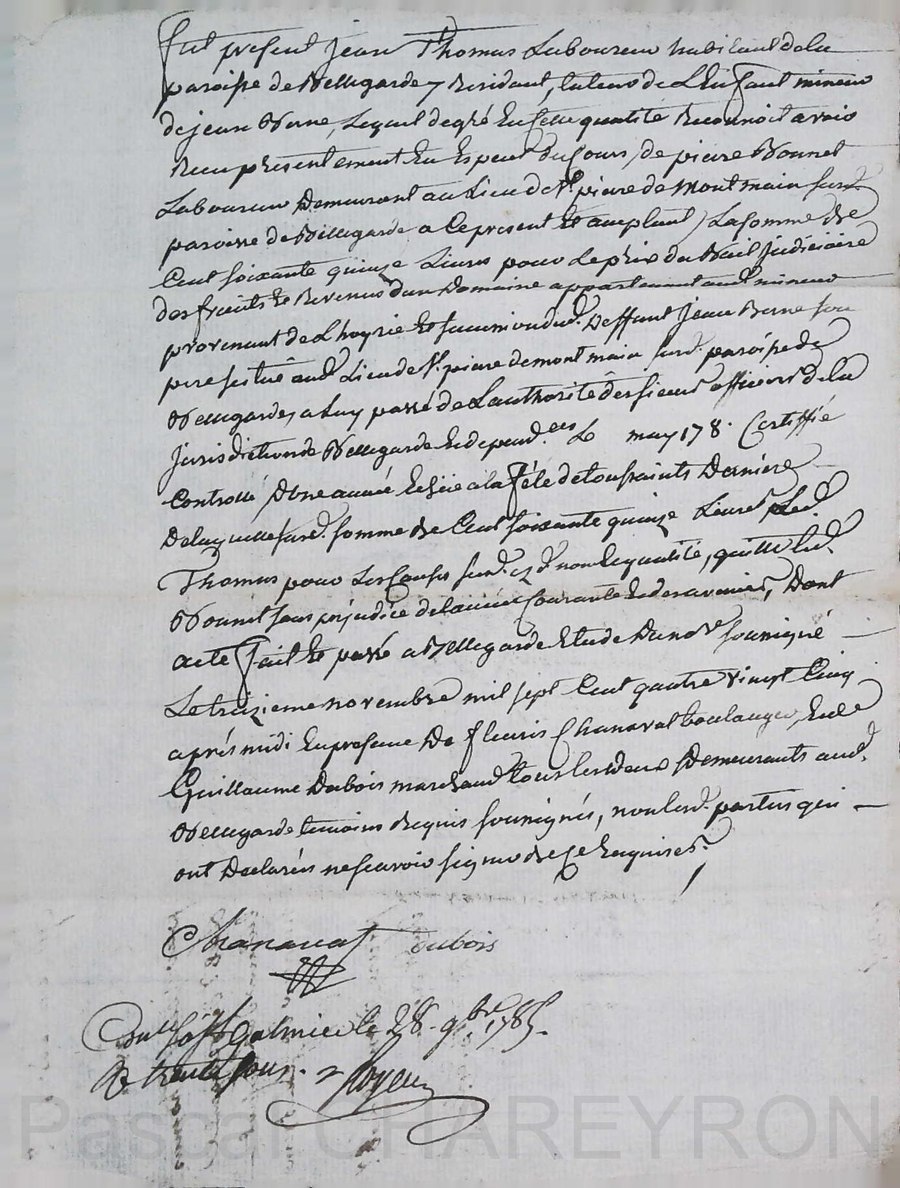 fut présent jean Thomas Laboureur habitant de la
paroisse de Bellegarde y Residant, tuteur de L'Enfant mineur
de jean Berne, Lequel de gré En cette qualité Reconnoit avoir
Reçu présentement En Espece du Cours, de pierre Bonnet
Laboureur Demeurant au Lieu de St. pierre de Montmain surd.
paroisse de Bellegarde a Ce present Et acceptant, La somme de
Cent soixante quinze Livres pour Le prix du Bail judiciaire
des fruits Et Revenus d'un Domaine appartenant aud. mineur
provenant de L'hoyrie Et succession dud. Deffunt jean Berne son
pere situé aud. Lieu de St. pierre de montmain surd. paroisse de
Bellegarde, a Luy passé de L'authorité des sieurs officiers de la
jurisdiction de Bellegarde Et depend.ces Le may 178. Certiffié
Controllé, D'une année Echue a la fête de toussaints Derniere
De laquelle surd. somme de Cent soixante quinze Livres, Led.
Thomas pour Les Causes surd. Et d. nom Et qualité, quitte led.
Bonnet sans prejudice de l'année Courante Et des avenirs, Dont
acte fait Et passé a Bellegarde Etude Du no.re soussigné
Le treizieme novembre mil sept Cent quatre vingt Cinq
après midi En presence De fleuris Chanavat boulanger, Et de
Guillaume Dubois marchand tous les deux Demeurants aud.
Bellegarde temoins Requis soussignés, non lesd. parties qui
ont Declarés ne scavoir signer de Ce Enquises.
Chanavat Dubois
Con.lé à St Galmier le 28. 9bre. 1785.
R trente sous.
Pascal CHAREYRON